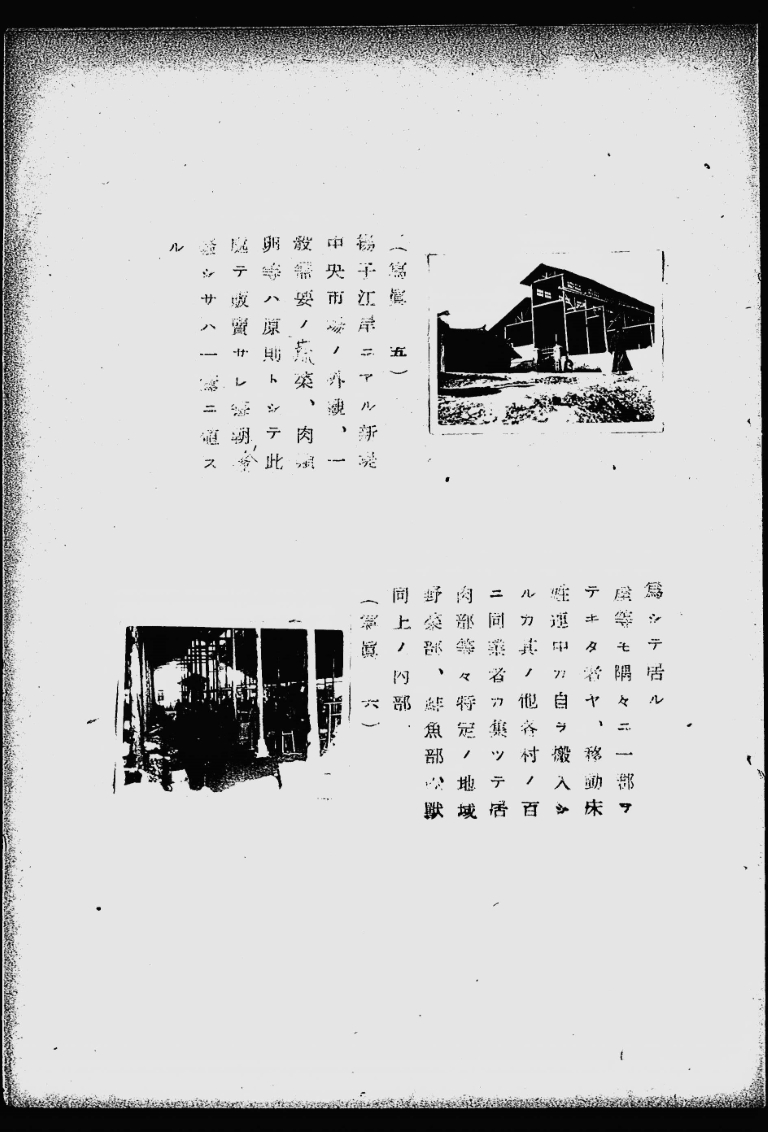 （寫眞　五）
揚子江岸ニアル新
中央市場ノ外觀、一
般需要ノ蔬菜、肉類
卵等ハ原則トシテ此
處テ販賣サレ毎朝
シサハ一驚ニ値ス
ル
（寫眞　六）
同上ノ内部
野菜部、鮮魚部、獸
肉部等々特定ノ地域
ニ同業者カ集ツテ居
ルカ其ノ他各村ノ百
姓連中カ自ラ搬入シ
テキタ者ヤ、移動床
屋等モ隅々ニ一部ヲ
爲シテ居ル